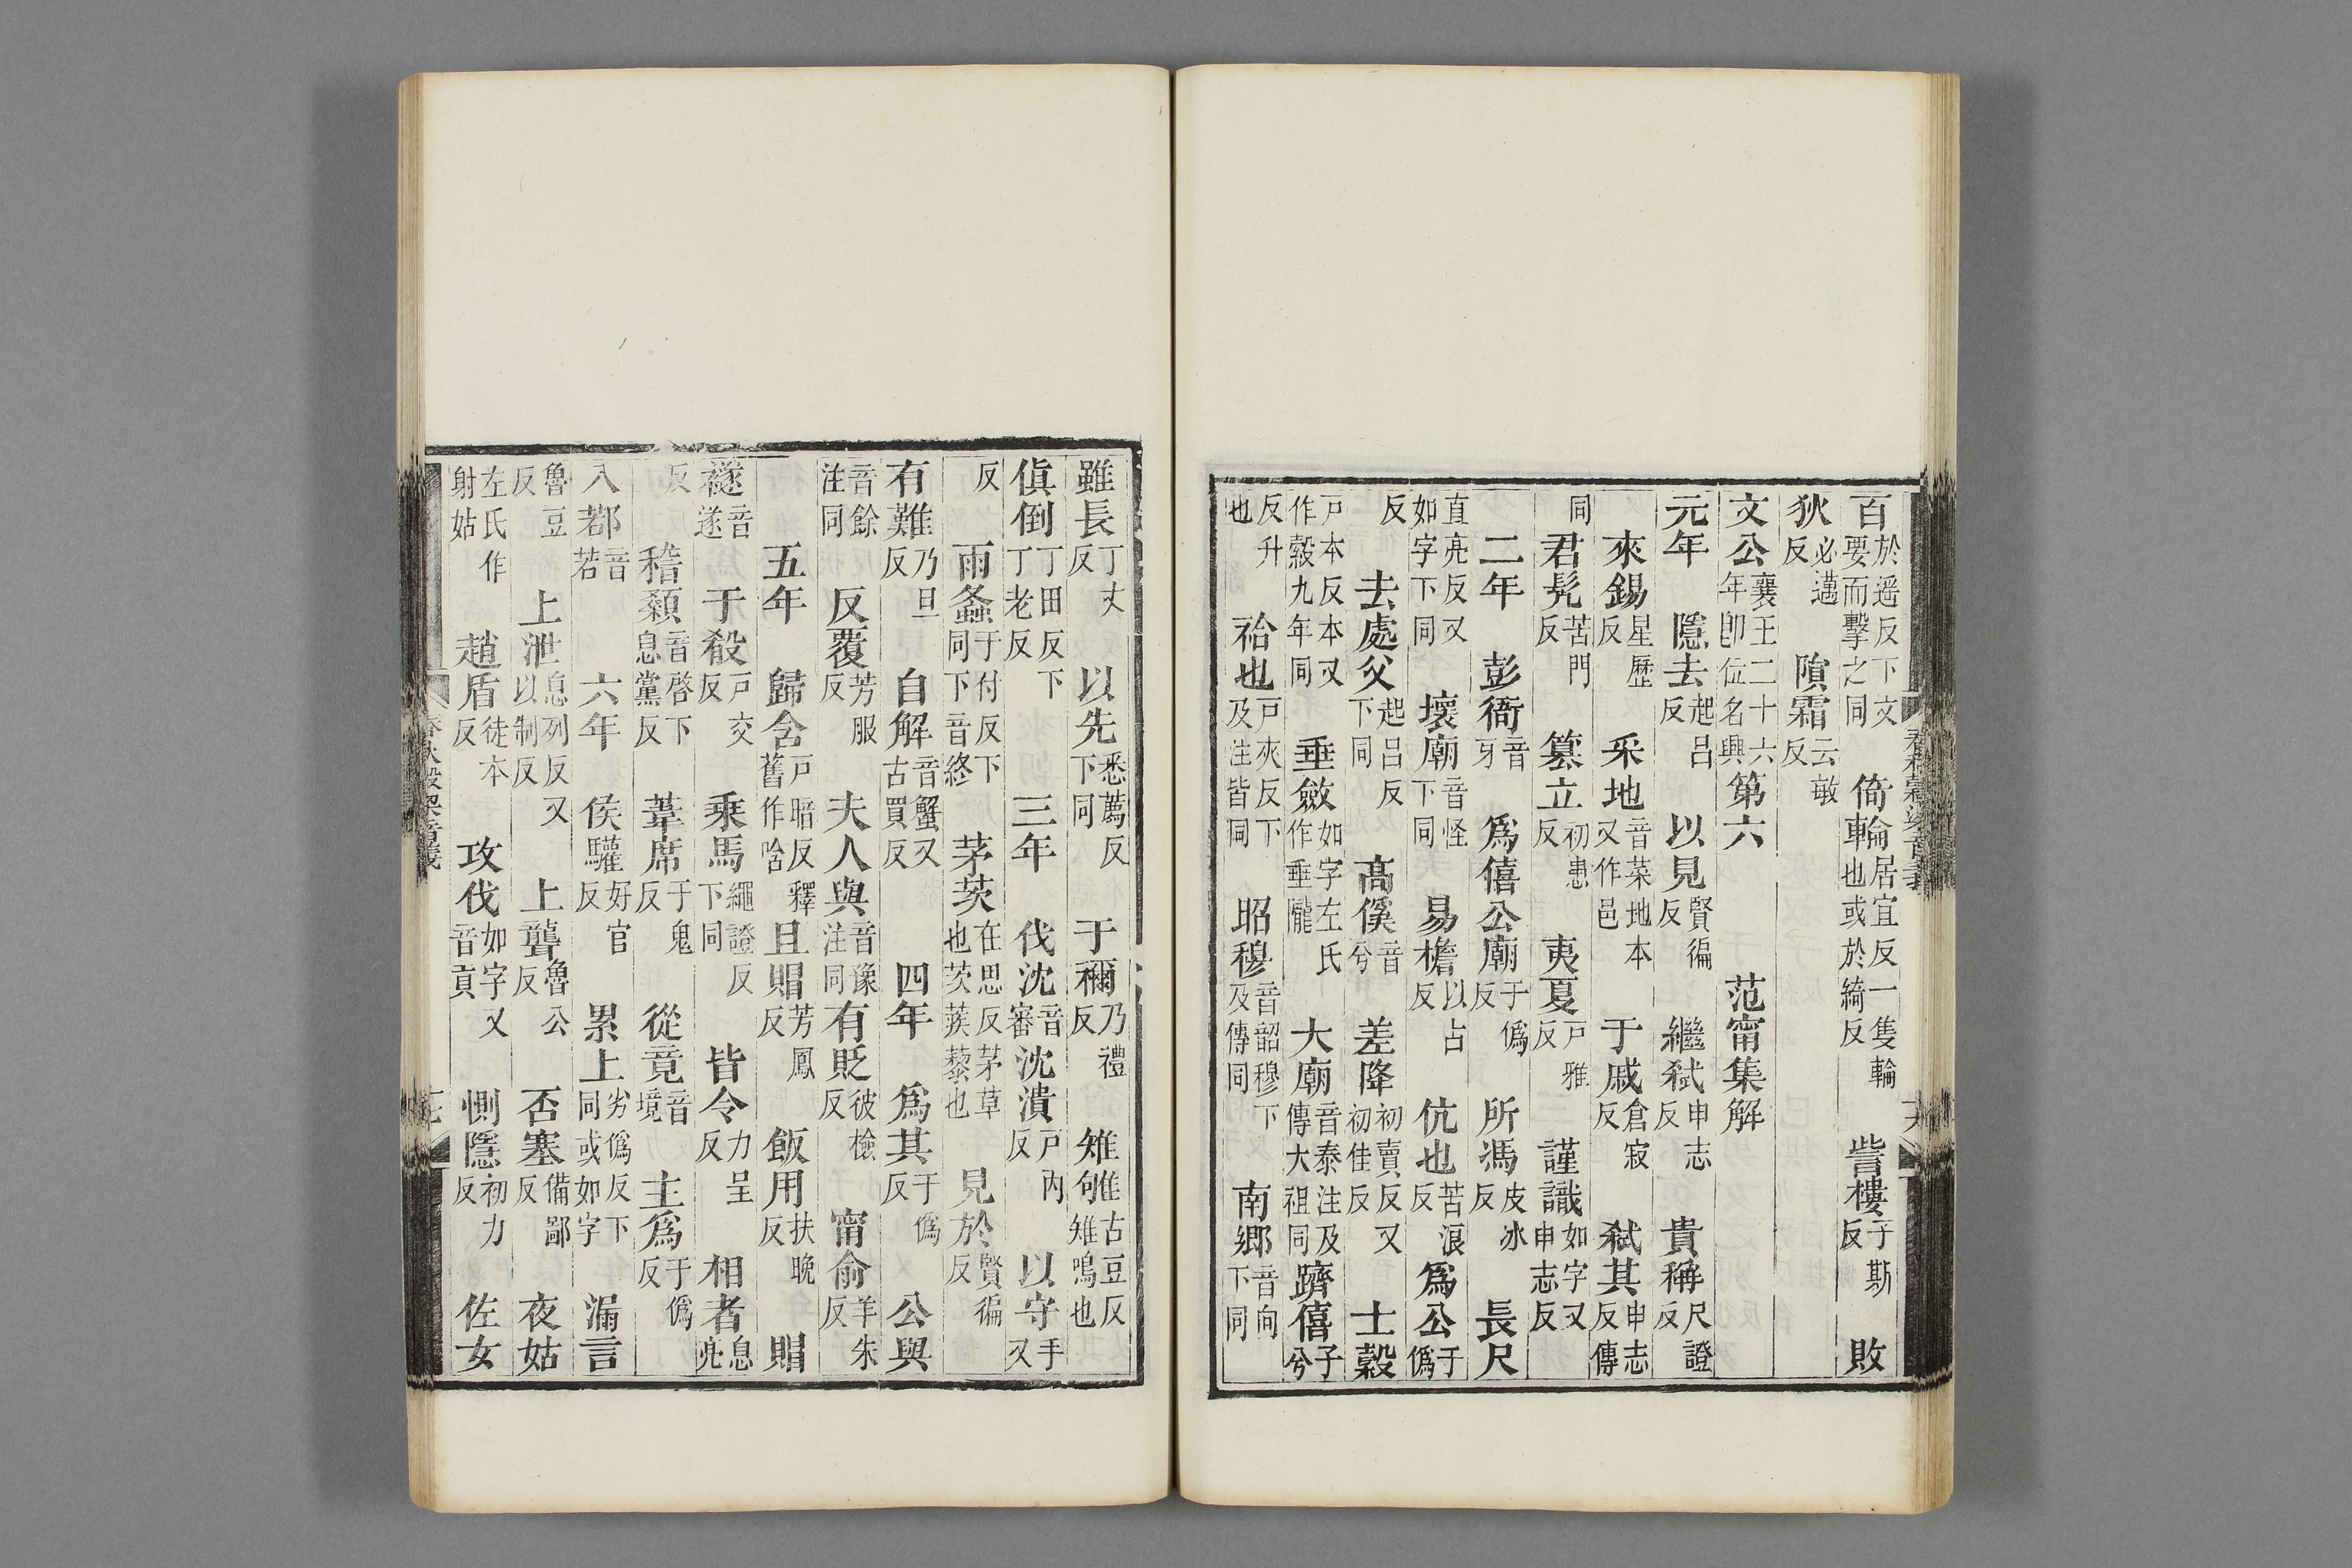 百於遥反下文要而擊之同 倚輪居宜反一隻輪也或於綺反 訾樓子斯反 敗
狄必邁反 隕霜云敏反
文公襄王二十六年即位名興第六 范甯集解
元年 隱去起呂反 以見賢徧反 繼弑申志反 貴稱尺證反
來錫星歷反 采地音菜地本又作邑 于戚倉寂反 弑其申志反傳
同 君髡苦門反 篡立初患反 夷夏戸雅反 謹識如字又申志反
二年 彭衙音牙 爲僖公廟于僞反 所馮皮冰反 長尺
直亮反又如字下同 壞廟音怪下同 易檐以占反 伉也苦浪反 爲公于僞
反 去處父起呂反下同 高傒音兮 差降初賣反又初佳反 士縠
戸本反本又作縠九年同 垂斂如字左氏作垂隴 大廟音泰注及傳大祖同 躋僖子兮
反升也 祫也戸夾反下及注皆同 昭穆音韶穆下及傳同 南鄉音向下同
雖長丁丈反 以先悉薦反下同 于禰乃禮反 雉雊古豆反雉鳴也
傎倒丁田反下丁老反 三年 伐沈音審 沈潰戸內反 以守手又
反 雨螽于付反下同下音終 茅茨在思反茅草也茨蒺藜也 見於賢徧反
有難乃旦反 自解音蟹又古買反 四年 爲其于僞反 公與
音餘注同 反覆芳服反 夫人與音豫注同 有貶彼檢反 甯俞羊朱反
五年 歸含戸暗反釋舊作唅 且賵芳鳳反 飯用扶晚反 賵
襚音遂 于殽戸交反 乘馬繩證反下同 皆令力呈反 相者息亮
反 稽顙音啓下息黨反 葦席于鬼反 從竟音境 主爲于僞反
入鄀音若 六年 侯驩好官反 累上劣僞反下同或如字 漏言
魯豆反 上泄息列反又以制反 上聾魯公反 否塞備鄙反 夜姑
左氏作射姑 趙盾徒本反 攻伐如字又音貢 惻隱初力反 佐女